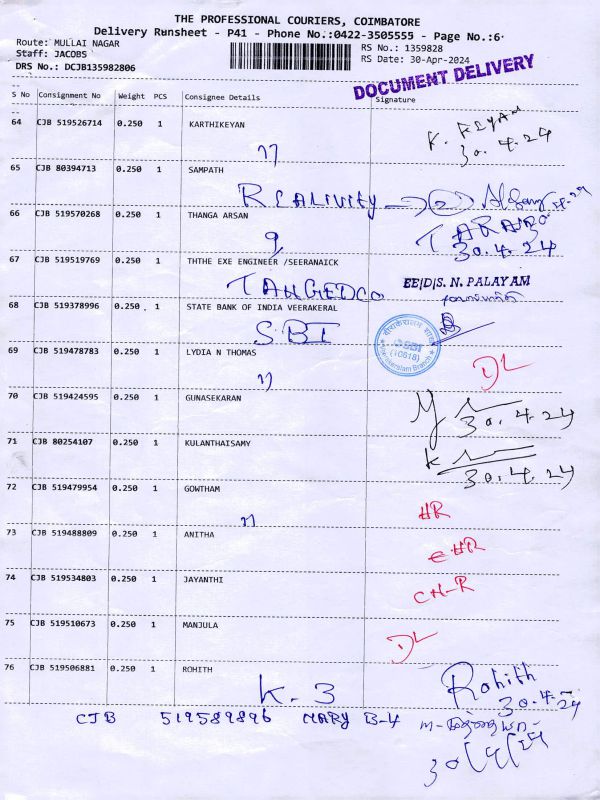 THE PROFESSIONAL COURIERS, COIMBATORE
Delivery Runsheet - P41 - Phone No.:0422-3505555 - Page No.:6
Route: MULLAI NAGAR
Staff: JACOBS
DRS No.: DCJB135982806
RS No.: 1359828
RS Date: 30-Apr-2024
DOCUMENT DELIVERY
S No Consignment No Weight PCS Consignee Details Signature
64 CJB 519526714 0.250 1 KARTHIKEYAN
30.4.24
65 CJB 80394713 0.250 1 SAMPATH
REALIVITY
66 CJB 519570268 0.250 1 THANGA ARSAN
9
30.4.24
67 CJB 519519769 0.250 1 THTHE EXE ENGINEER /SEERANAICK
TANGEDCO
EE/D/S. N. PALAYAM
68 CJB 519378996 0.250 1 STATE BANK OF INDIA VEERAKERAL
SBI
SBI
(10618)
69 CJB 519478783 0.250 1 LYDIA N THOMAS
DL
70 CJB 519424595 0.250 1 GUNASEKARAN
30.4.24
71 CJB 80254107 0.250 1 KULANTHAISAMY
K
30.4.24
72 CJB 519479954 0.250 1 GOWTHAM
HR
73 CJB 519488809 0.250 1 ANITHA
74 CJB 519534803 0.250 1 JAYANTHI
75 CJB 519510673 0.250 1 MANJULA
DL
76 CJB 519506881 0.250 1 ROHITH
K-3
Rohith
30.4.24
CJB 519589896 MARY B-4